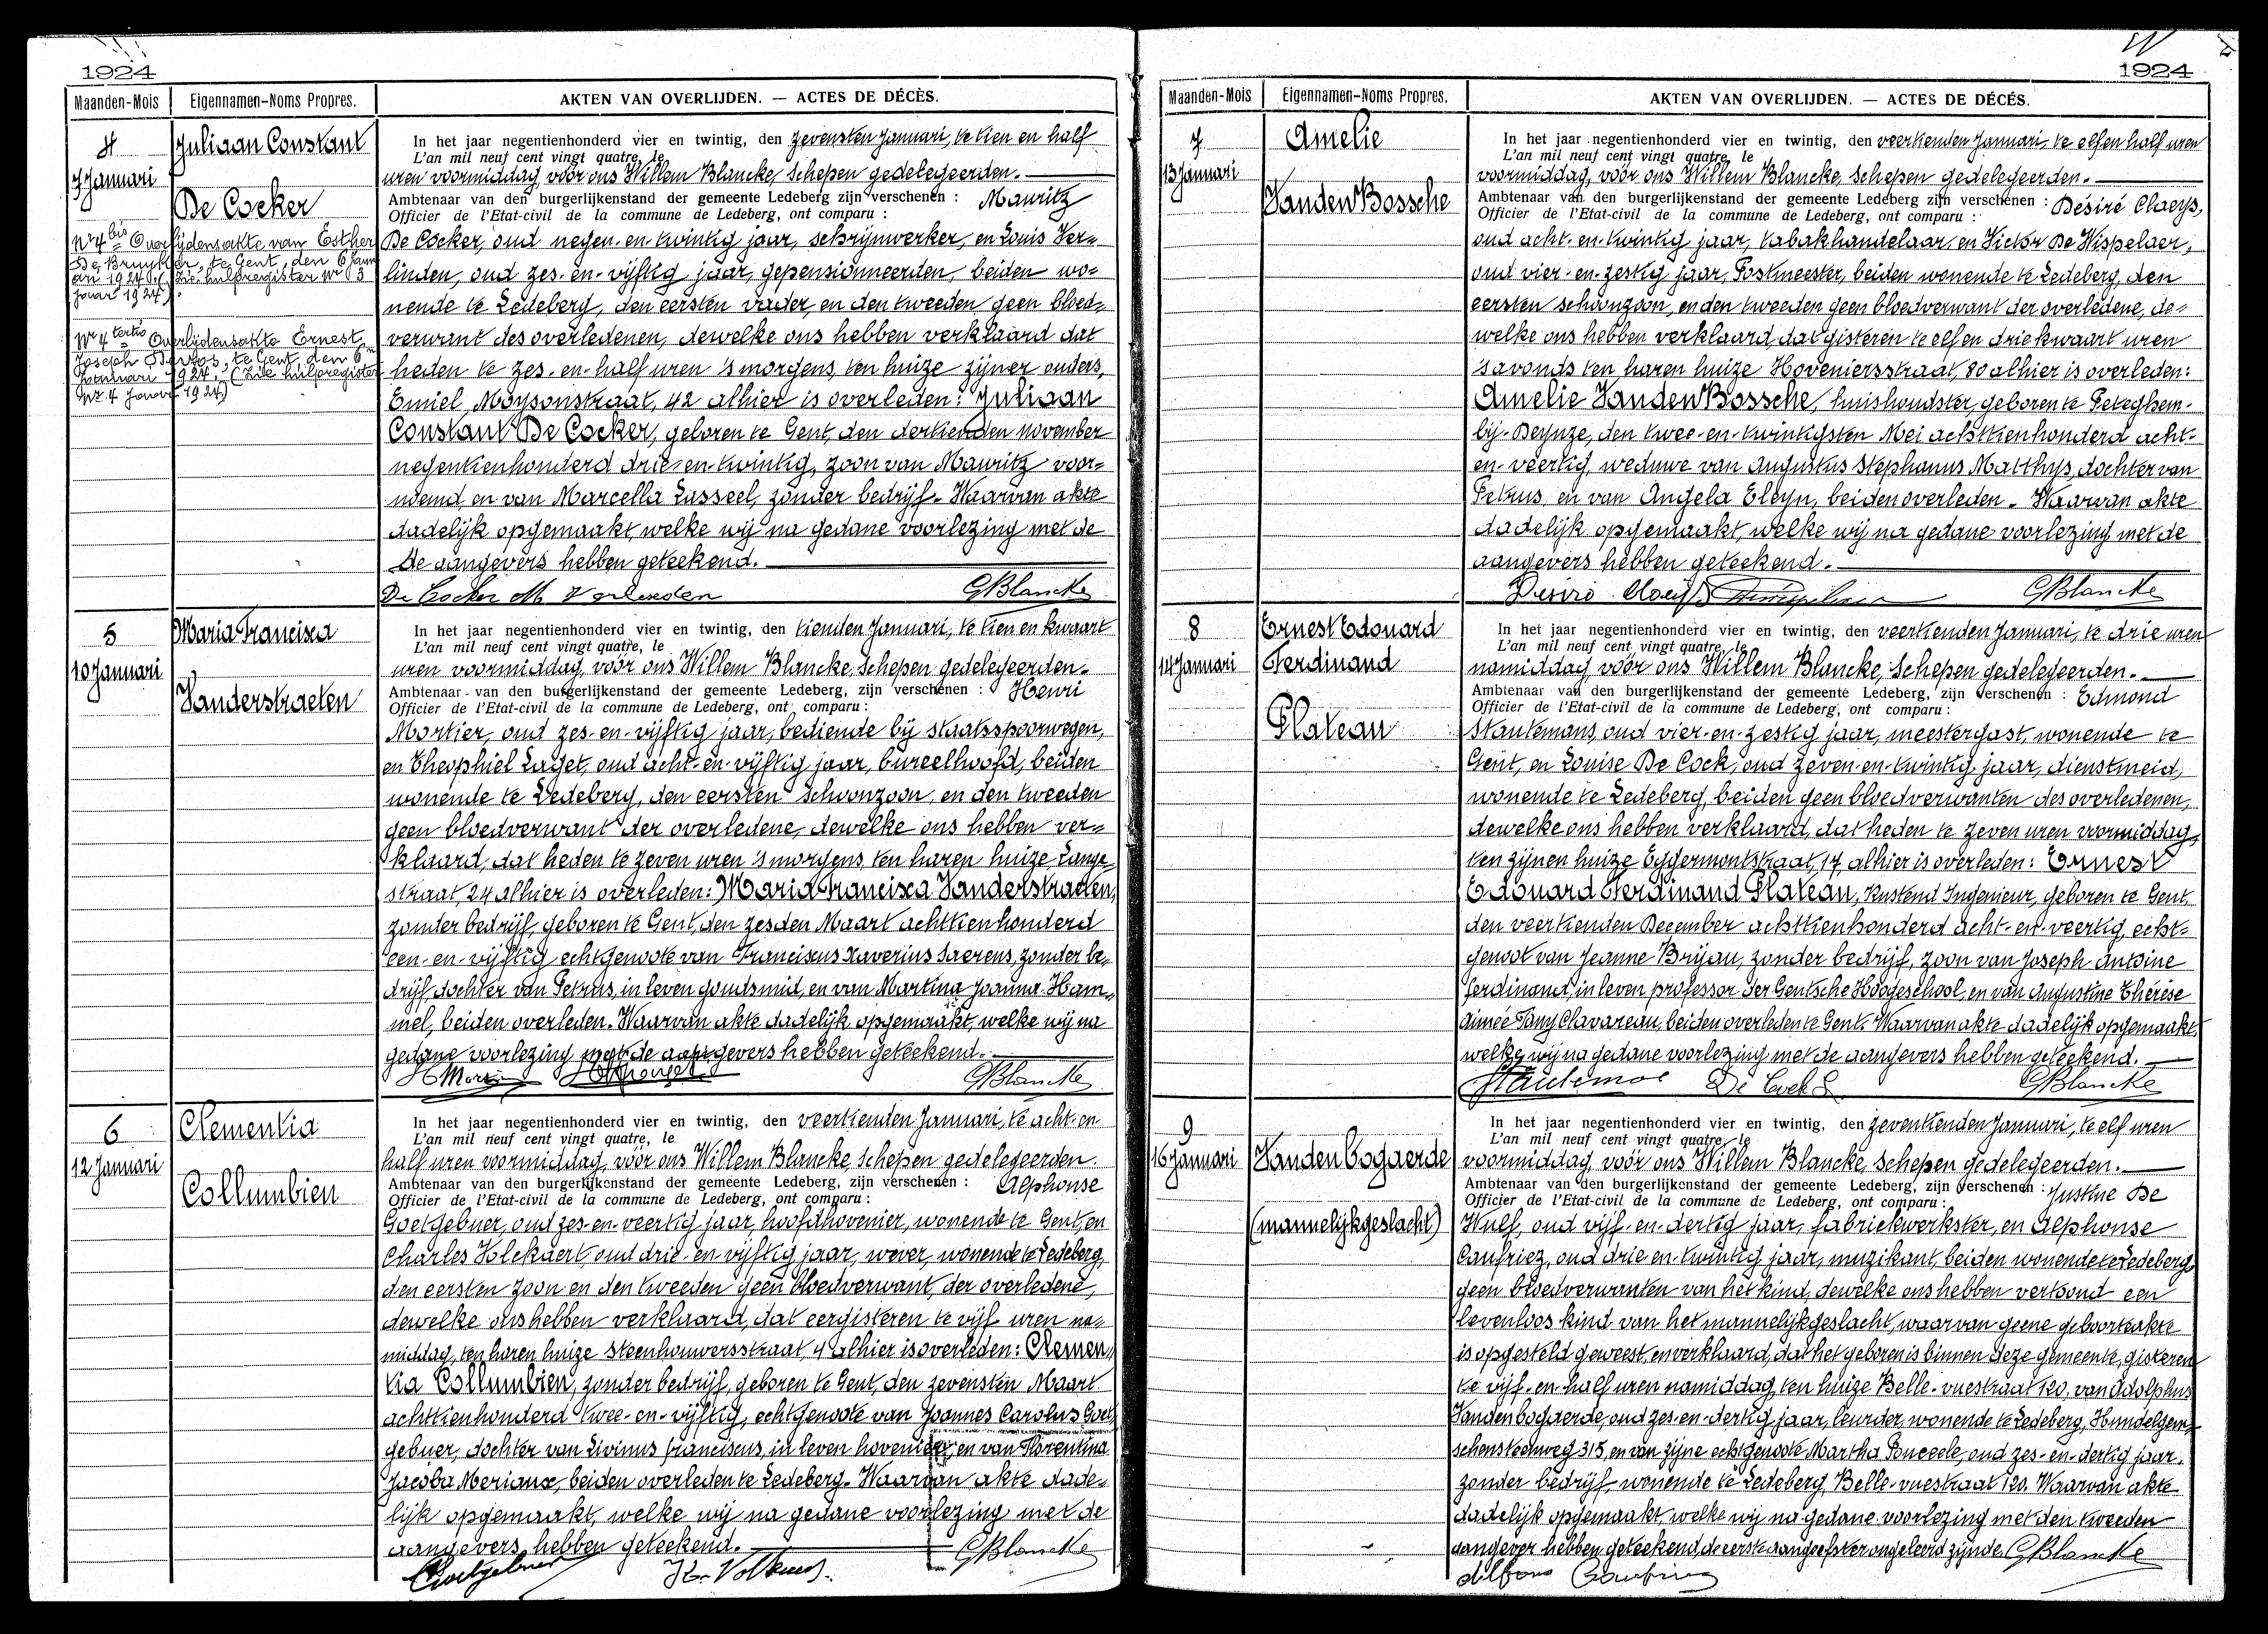 1924
Maanden-Mois
Eigennamen-Noms Propres.
AKTEN VAN OVERLIJDEN. — ACTES DE DÉCÈS.
4
7 Januari
Juliaan Constant
De Cocker
Nr 4 bis Overlijdensakte van Esther
De Bruyker, te Gent, den 6 Janu
ari 1924. (Zie hulpregister Nr 3
jaar 1924).
Nr 4 tertio Overlijdensakte Ernest
Joseph te Gent, den 6n
Januari 1924. (Zie hulpregister
Nr 4 1924)
In het jaar negentienhonderd vier en twintig, den zevensten Januari, te tien en half
L'an mil neuf cent vingt quatre, le
uren voormiddag, vóór ons Willem Blancke, Schepen gedelegeerden.
Ambtenaar van den burgerlijkenstand der gemeente Ledeberg zijn verschenen : Mauritz
Officier de l'Etat-civil de la commune de Ledeberg, ont comparu :
De Cocker, oud negen-en-twintig jaar, schrijnwerker, en Louis Ver=
linden, oud zes-en-vijftig jaar, gepensionneerden, beiden wo=
nende te Ledeberg, den eersten vader, en den tweeden geen bloed=
verwant des overledenen, dewelke ons hebben verklaard dat
heden te zes-en-half uren 's morgens, ten huize zijner ouders,
Emiel Moysonstraat, 42 alhier is overleden: Juliaan
Constant De Cocker, geboren te Gent, den dertienden november
negentienhonderd drie-en-twintig, zoon van Mauritz voor=
noemd, en van Marcella Lusseel, zonder bedrijf. Waarvan akte
dadelijk opgemaakt, welke wij na gedane voorlezing met de
De aangevers hebben geteekend.
De Cocker M Verlinden GBlancke
5
10 Januari
Maria Francisca
Vanderstraeten
In het jaar negentienhonderd vier en twintig, den tienden Januari, te tien en kwaart
L'an mil neuf cent vingt quatre, le
uren voormiddag, vóór ons Willem Blancke, Schepen gedelegeerden.
Ambtenaar van den burgerlijkenstand der gemeente Ledeberg, zijn verschenen : Henri
Officier de l'Etat-civil de la commune de Ledeberg, ont comparu :
Mortier, oud zes-en-vijftig jaar, bediende bij staatsspoorwegen,
en Theophiel Laget, oud acht-en-vijftig jaar, bureelhoofd, beiden
wonende te Ledeberg, den eersten schoonzoon, en den tweeden
geen bloedverwant der overledene, dewelke ons hebben ver=
klaard, dat heden te zeven uren 's morgens, ten haren huize Lange
straat, 24 alhier is overleden: Maria Francisca Vanderstraeten,
zonder bedrijf, geboren te Gent, den zesden Maart achttienhonderd
een-en-vijftig, echtgenoote van Franciscus Xaverius Saerens, zonder be=
drijf, dochter van Petrus, in leven goudsmid, en van Martina Joanna Ham=
mel, beiden overleden. Waarvan akte dadelijk opgemaakt, welke wij na
gedane voorlezing met de aangevers hebben geteekend.
GBlancke
6
12 Januari
Clementia
Collumbien
In het jaar negentienhonderd vier en twintig, den veertienden Januari, te acht-en
L'an mil neuf cent vingt quatre, le
half uren voormiddag, vóór ons Willem Blancke, Schepen gedelegeerden.
Ambtenaar van den burgerlijkenstand der gemeente Ledeberg, zijn verschenen : Alphonse
Officier de l'Etat-civil de la commune de Ledeberg, ont comparu :
Goetgebuer, oud zes-en-veertig jaar, hoofdhovenier, wonende te Gent, en
Charles Volckaert, oud drie-en-vijftig jaar, wever, wonende te Ledeberg,
den eersten zoon en den tweeden geen bloedverwant, der overledene,
dewelke ons hebben verklaard, dat eergisteren te vijf uren na=
middag, ten haren huize Steenhouwersstraat, 4 alhier is overleden: Clemen=
tia Collumbien, zonder bedrijf, geboren te Gent, den zevensten Maart
achttienhonderd twee-en-vijftig, echtgenoote van Joannes Carolus Goet=
gebuer, dochter van Livinus Franciscus, in leven hovenier, en van Florentina
Jacoba Meriaux, beiden overleden te Ledeberg. Waarvan akte dade=
lijk opgemaakt, welke wij na gedane voorlezing met de
aangevers hebben geteekend. GBlancke
Goetgebuer
1924
Maanden-Mois
Eigennamen-Noms Propres.
AKTEN VAN OVERLIJDEN. — ACTES DE DÉCÈS.
7
13 Januari
Amelie
Vanden Bossche
In het jaar negentienhonderd vier en twintig, den veertienden Januari, te elf en half uren
L'an mil neuf cent vingt quatre, le
voormiddag, vóór ons Willem Blancke, Schepen gedelegeerden.
Ambtenaar van den burgerlijkenstand der gemeente Ledeberg zijn verschenen : Desiré Claeys,
Officier de l'Etat-civil de la commune de Ledeberg, ont comparu :
oud acht-en-twintig jaar, tabakhandelaar, en Victor De Wispelaer,
oud vier-en-zestig jaar, Postmeester, beiden wonende te Ledeberg, den
eersten schoonzoon, en den tweeden geen bloedverwant der overledene, de=
welke ons hebben verklaard, dat gisteren te elf en drie kwaart uren
's avonds ten haren huize Hoveniersstraat, 80 alhier is overleden:
Amelie Vanden Bossche, huishoudster, geboren te Peteghem-
bij-Deynze, den twee-en-twintigsten Mei achttienhonderd acht-
en-veertig, weduwe van Augustus Stephanus Matthys, dochter van
Petrus, en van Angela Eleyn, beiden overleden. Waarvan akte
dadelijk opgemaakt, welke wij na gedane voorlezing met de
aangevers hebben geteekend.
Desiré Claeys GBlancke
8
14 Januari
Ernest Edouard
Ferdinand
Plateau
In het jaar negentienhonderd vier en twintig, den veertienden Januari, te drie uren
L'an mil neuf cent vingt quatre, le
namiddag, vóór ons Willem Blancke, Schepen gedelegeerden.
Ambtenaar van den burgerlijkenstand der gemeente Ledeberg, zijn verschenen : Edmond
Officier de l'Etat-civil de la commune de Ledeberg, ont comparu :
Stautemans, oud vier-en-zestig jaar, meestergast, wonende te
Gent, en Louise De Cock, oud zeven-en-twintig jaar, dienstmeid,
wonende te Ledeberg, beiden geen bloedverwanten des overledenen,
dewelke ons hebben verklaard, dat heden te zeven uren voormiddag,
ten zijnen huize Eggermontstraat, 17, alhier is overleden: Ernest
Edouard Ferdinand Plateau, Rustend Ingenieur, geboren te Gent,
den veertienden December achttienhonderd acht-en-veertig, echt=
genoot van Jeanne Brijau, zonder bedrijf, zoon van Joseph Antoine
Ferdinand, in leven professor der Gentsche Hoogeschool, en van Augustine Thérèse
Aimée Fany Clavareau, beiden overleden te Gent. Waarvan akte dadelijk opgemaakt,
welke wij na gedane voorlezing met de aangevers hebben geteekend.
De Cock L GBlancke
9
16 Januari
Vandenbogaerde
(mannelijkgeslacht)
In het jaar negentienhonderd vier en twintig, den zeventienden Januari, te elf uren
L'an mil neuf cent vingt quatre, le
voormiddag, vóór ons Willem Blancke, Schepen gedelegeerden.
Ambtenaar van den burgerlijkenstand der gemeente Ledeberg, zijn verschenen : Justine De
Officier de l'Etat-civil de la commune de Ledeberg, ont comparu :
Wulf, oud vijf-en-dertig jaar, fabriekwerkster, en Alphonse
Caufriez, oud drie-en-twintig jaar, muzikant, beiden wonende te Ledeberg,
geen bloedverwanten van het kind, dewelke ons hebben vertoond een
levenloos kind van het mannelijkgeslacht, waarvan geene geboorteakte
is opgesteld geweest, en verklaard, dat het geboren is binnen deze gemeente, gisteren
te vijf-en-half uren namiddag, ten huize Belle-vuestraat 120, van Adolphus
Vandenbogaerde, oud zes-en-dertig jaar, leurder, wonende te Ledeberg, Hundelgem=
schensteenweg 315, en van zijne echtgenoote Martha Ponceele, oud zes-en-dertig jaar,
zonder bedrijf, wonende te Ledeberg, Belle-vuestraat 120. Waarvan akte
dadelijk opgemaakt, welke wij na gedane voorlezing met den tweeden
aangever hebben geteekend, de eerste aangeefster ongeleerd zijnde. GBlancke